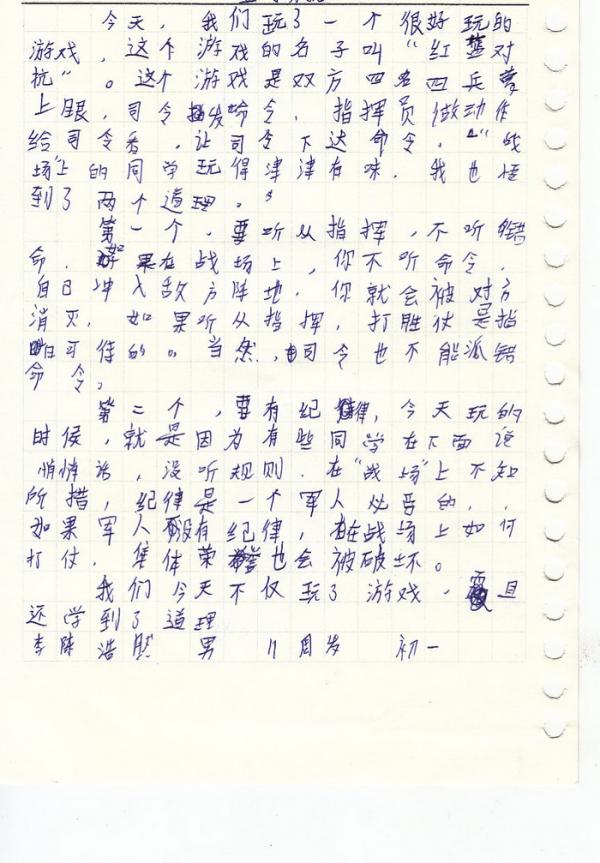 今天，我们玩了一个很好玩的
游戏，这个游戏的名子叫“红蓝对
抗”。这个游戏是双方四名四兵蒙
上眼，司令发命令，指挥员做动作
给司令看，让司令下达命令。“战
场”上的同学玩得津津有味，我也悟
到了两个道理。
第一个，要听从指挥，不听错
命，如果在战场上，你不听命令，
自己冲入敌方阵地，你就会被对方
消灭，如果听从指挥，打胜仗是指
日可待的。当然，司令也不能派错
命令。
第二个，要有纪律，今天玩的
时候，就是因为有些同学在下面说
悄悄话，没听规则，在“战场”上不知
所措，纪律是一个军人必要的，
如果军人没有纪律，在战场上如何
打仗，集体荣誉也会被破坏。
我们今天不仅玩了游戏，而且
还学到了道理
李陈浩然 男 11周岁 初一